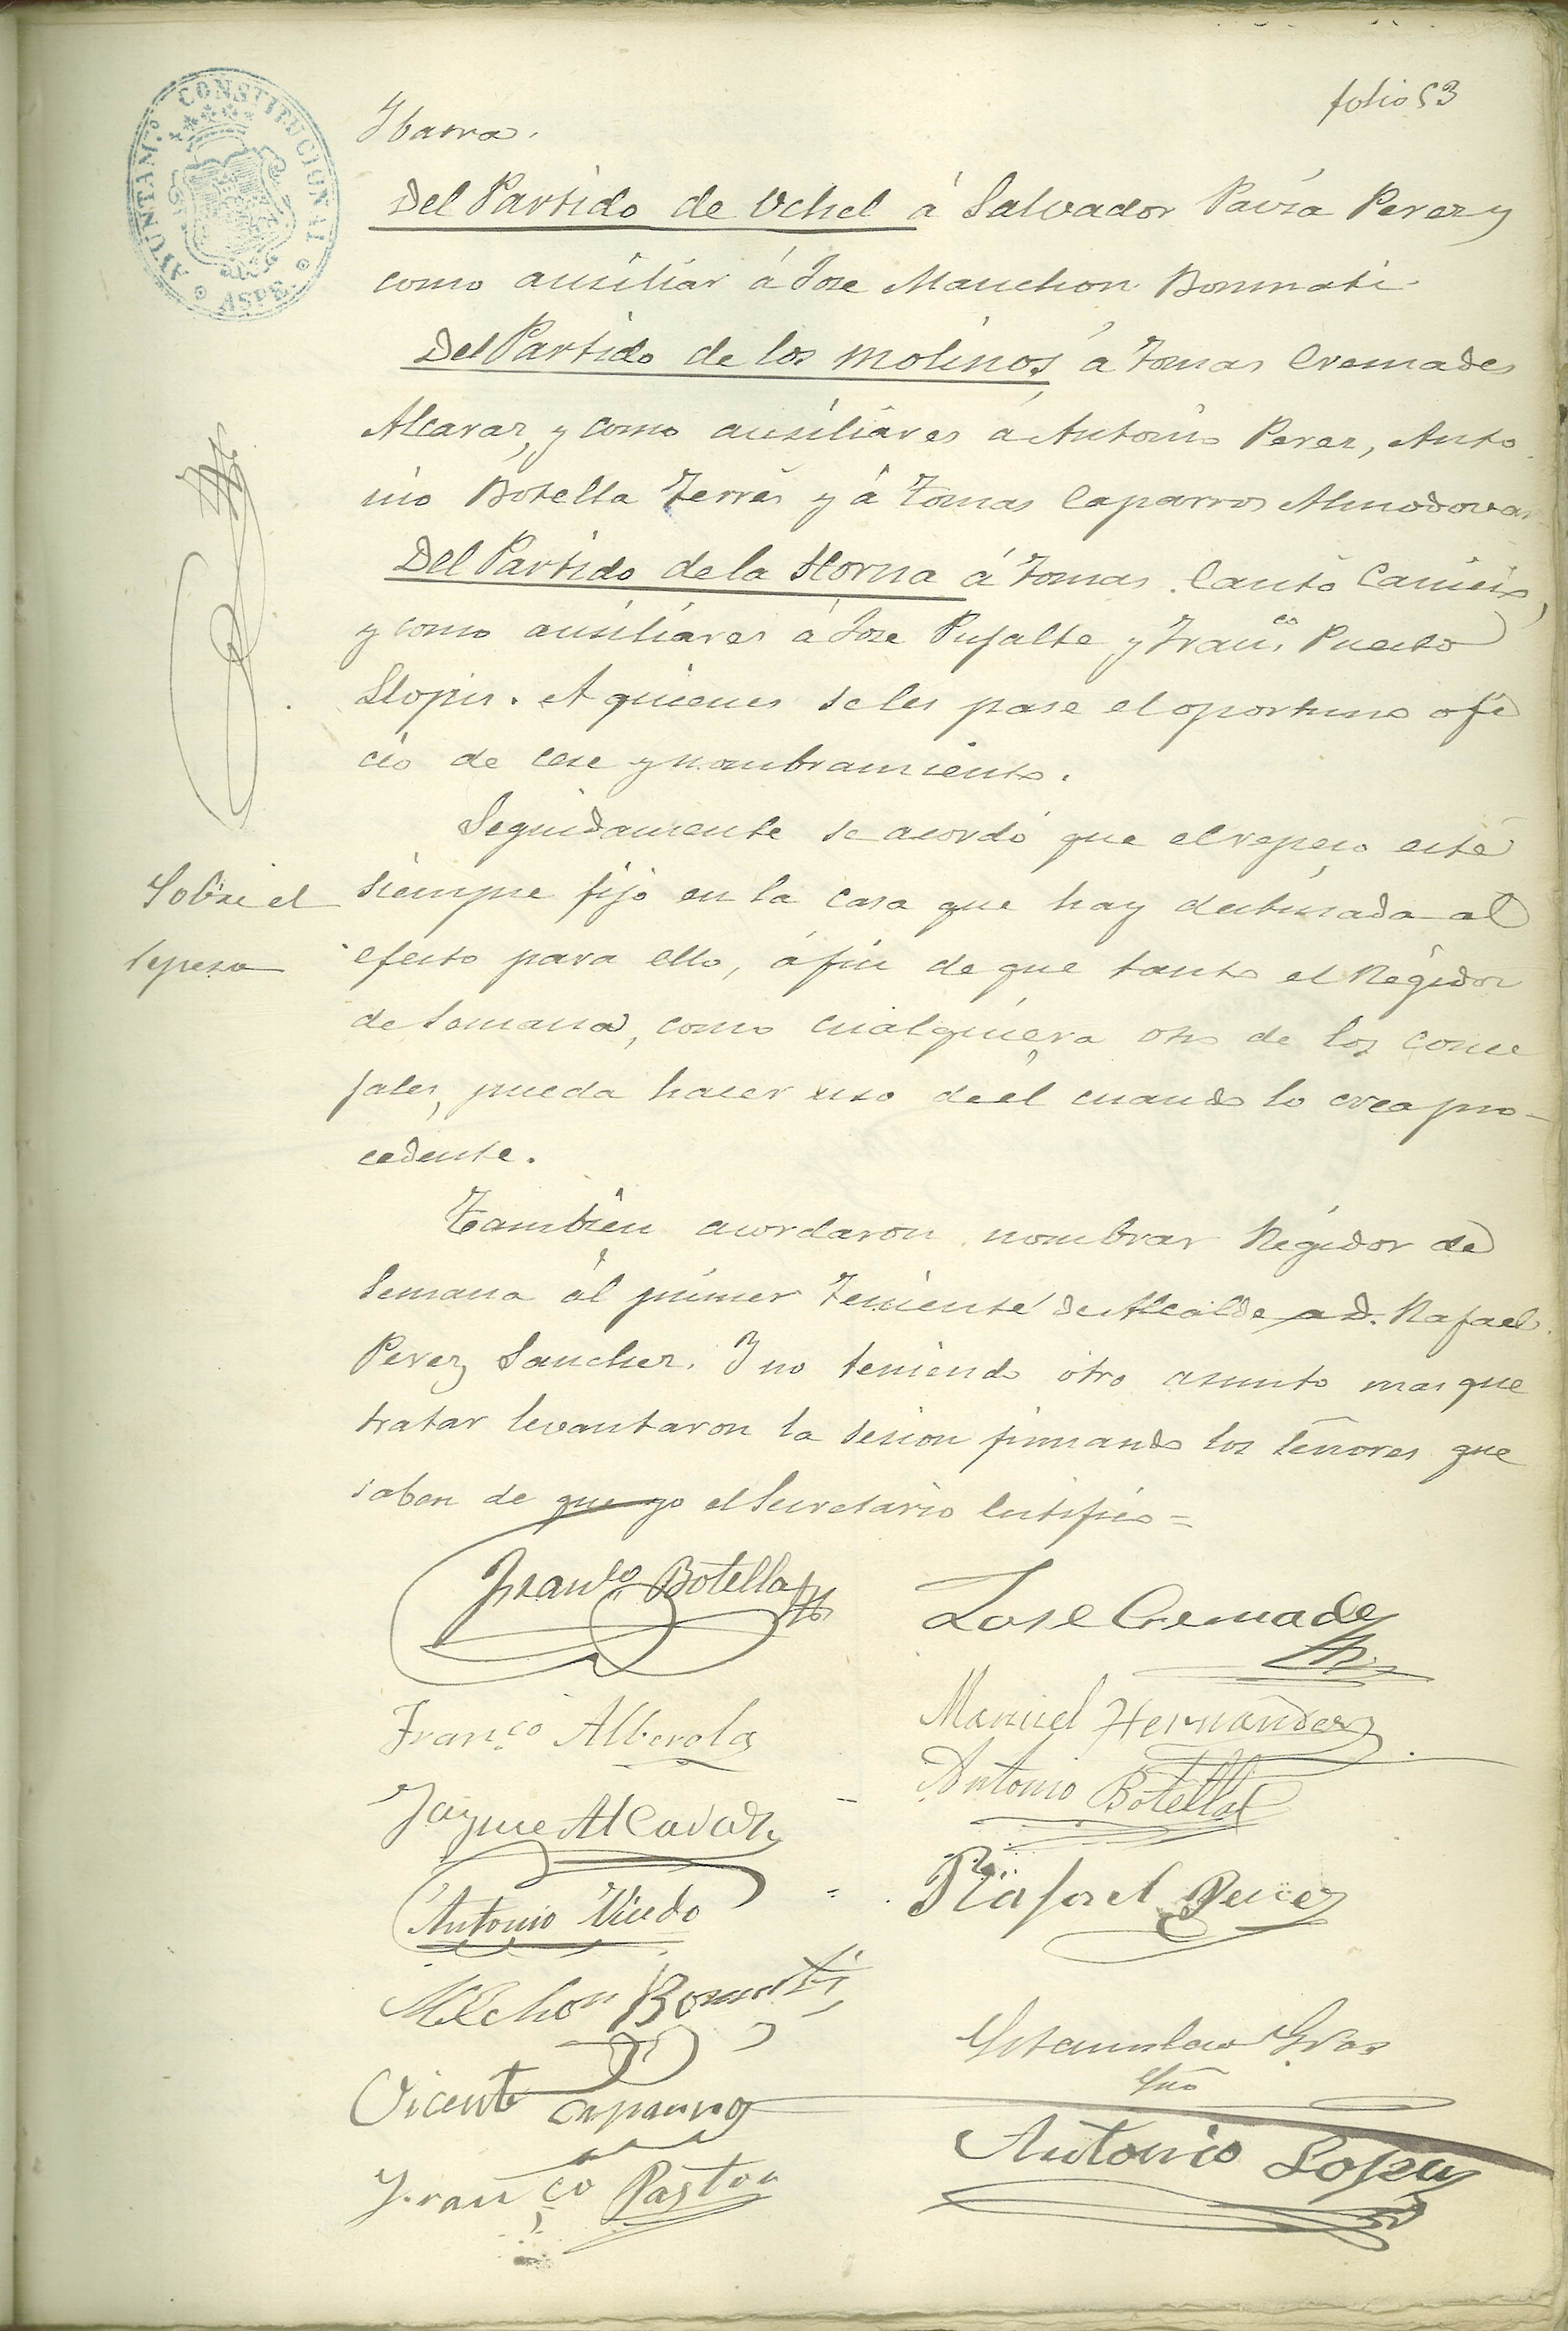 folio 53
AYUNTAM.TO CONSTITUCIONAL
ASPE.
Ibarra.
Del Partido de Uchel á Salvador Pavia Perez y
como ausiliar á Jose Manchon Bonmati.
Del Partido de los Molinos, á Tomas Cremades
Alcaraz, y como ausiliares á Antonio Perez, Anto
nio Botella Terres y á Tomas Caparros Almodovar
Del Partido de la Horna á Tomas Cantó
y como ausiliares á Jose Pujalte y Fran.co Puerto
Llopis. A quienes se les pase el oportuno ofi
cio de cese y nombramiento.
Seguidamente se acordó que el repeso esté
Sobre el
repeso
siempre fijo en la casa que hay destinada al
efecto para ello, á fin de que tanto el Regidor
de Semana, como cualquiera otro de los conce
jales, pueda hacer uso de él cuando lo crea pro-
cedente.
Tambien acordaron nombrar Regidor de
Semana al primer Teniente de Alcalde a D. Rafael
Perez Sanchez. Y no teniendo otro asunto mas que
tratar levantaron la sesion firmando los Señores que
saben de que yo el Secretario Certifico =
Franco Botella
Jose Cremades
Franco Alberola
Manuel Hernandez
Antonio Botella
Jayme Alcaraz
Rafael Perez
Antonio Vicedo
Melchor Bonmati
Estanislao Gras
Vicente Caparros
Antonio Lopez
Franco Pastor